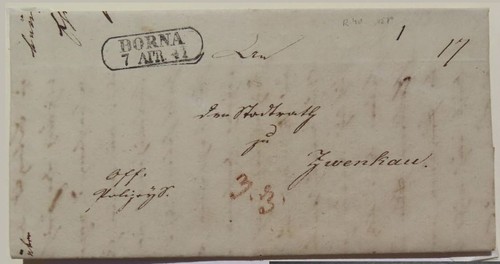 BORNA
7 APR 42
1
17
den Stadtrath
zu
Zwenkau.
Off.
Polizeys.
3.
3.